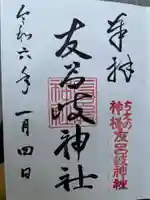 奉拝
ちえの
神様
友呂岐神社
友呂岐神社
令和六年一月四日